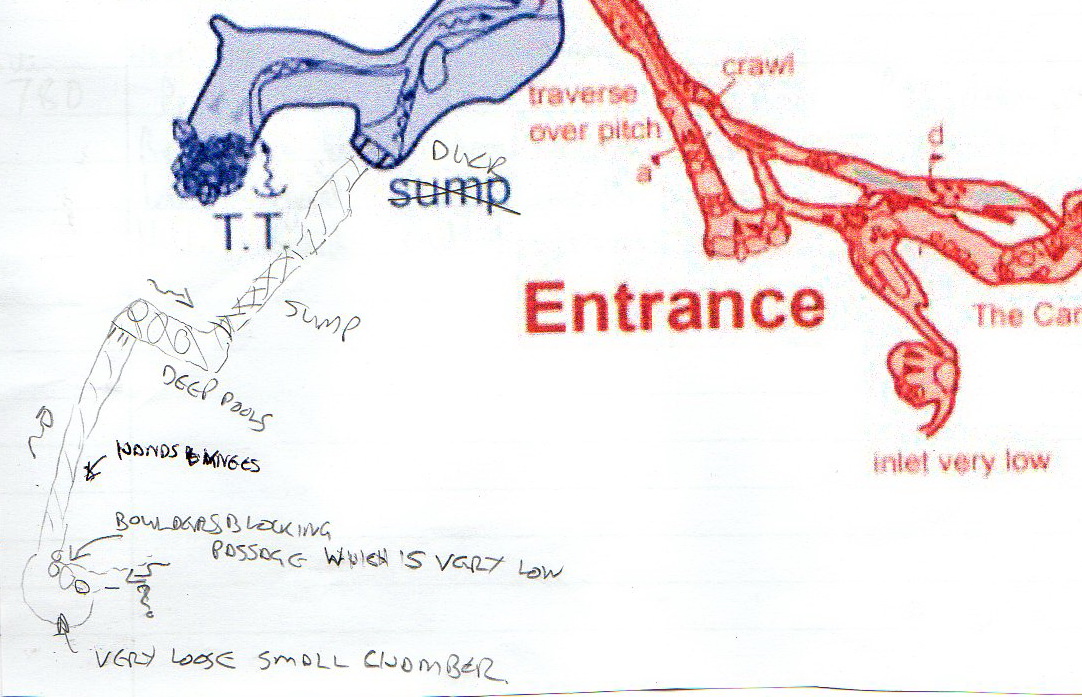 crawl
traverse
over pitch
a
d
DUCK
sump
T.T.
Entrance
The Car
SUMP
DEEP POOLS
HANDS & KNEES
inlet very low
BOULDERS BLOCKING
PASSAGE WHICH IS VERY LOW
?
VERY LOOSE SMALL CHAMBER